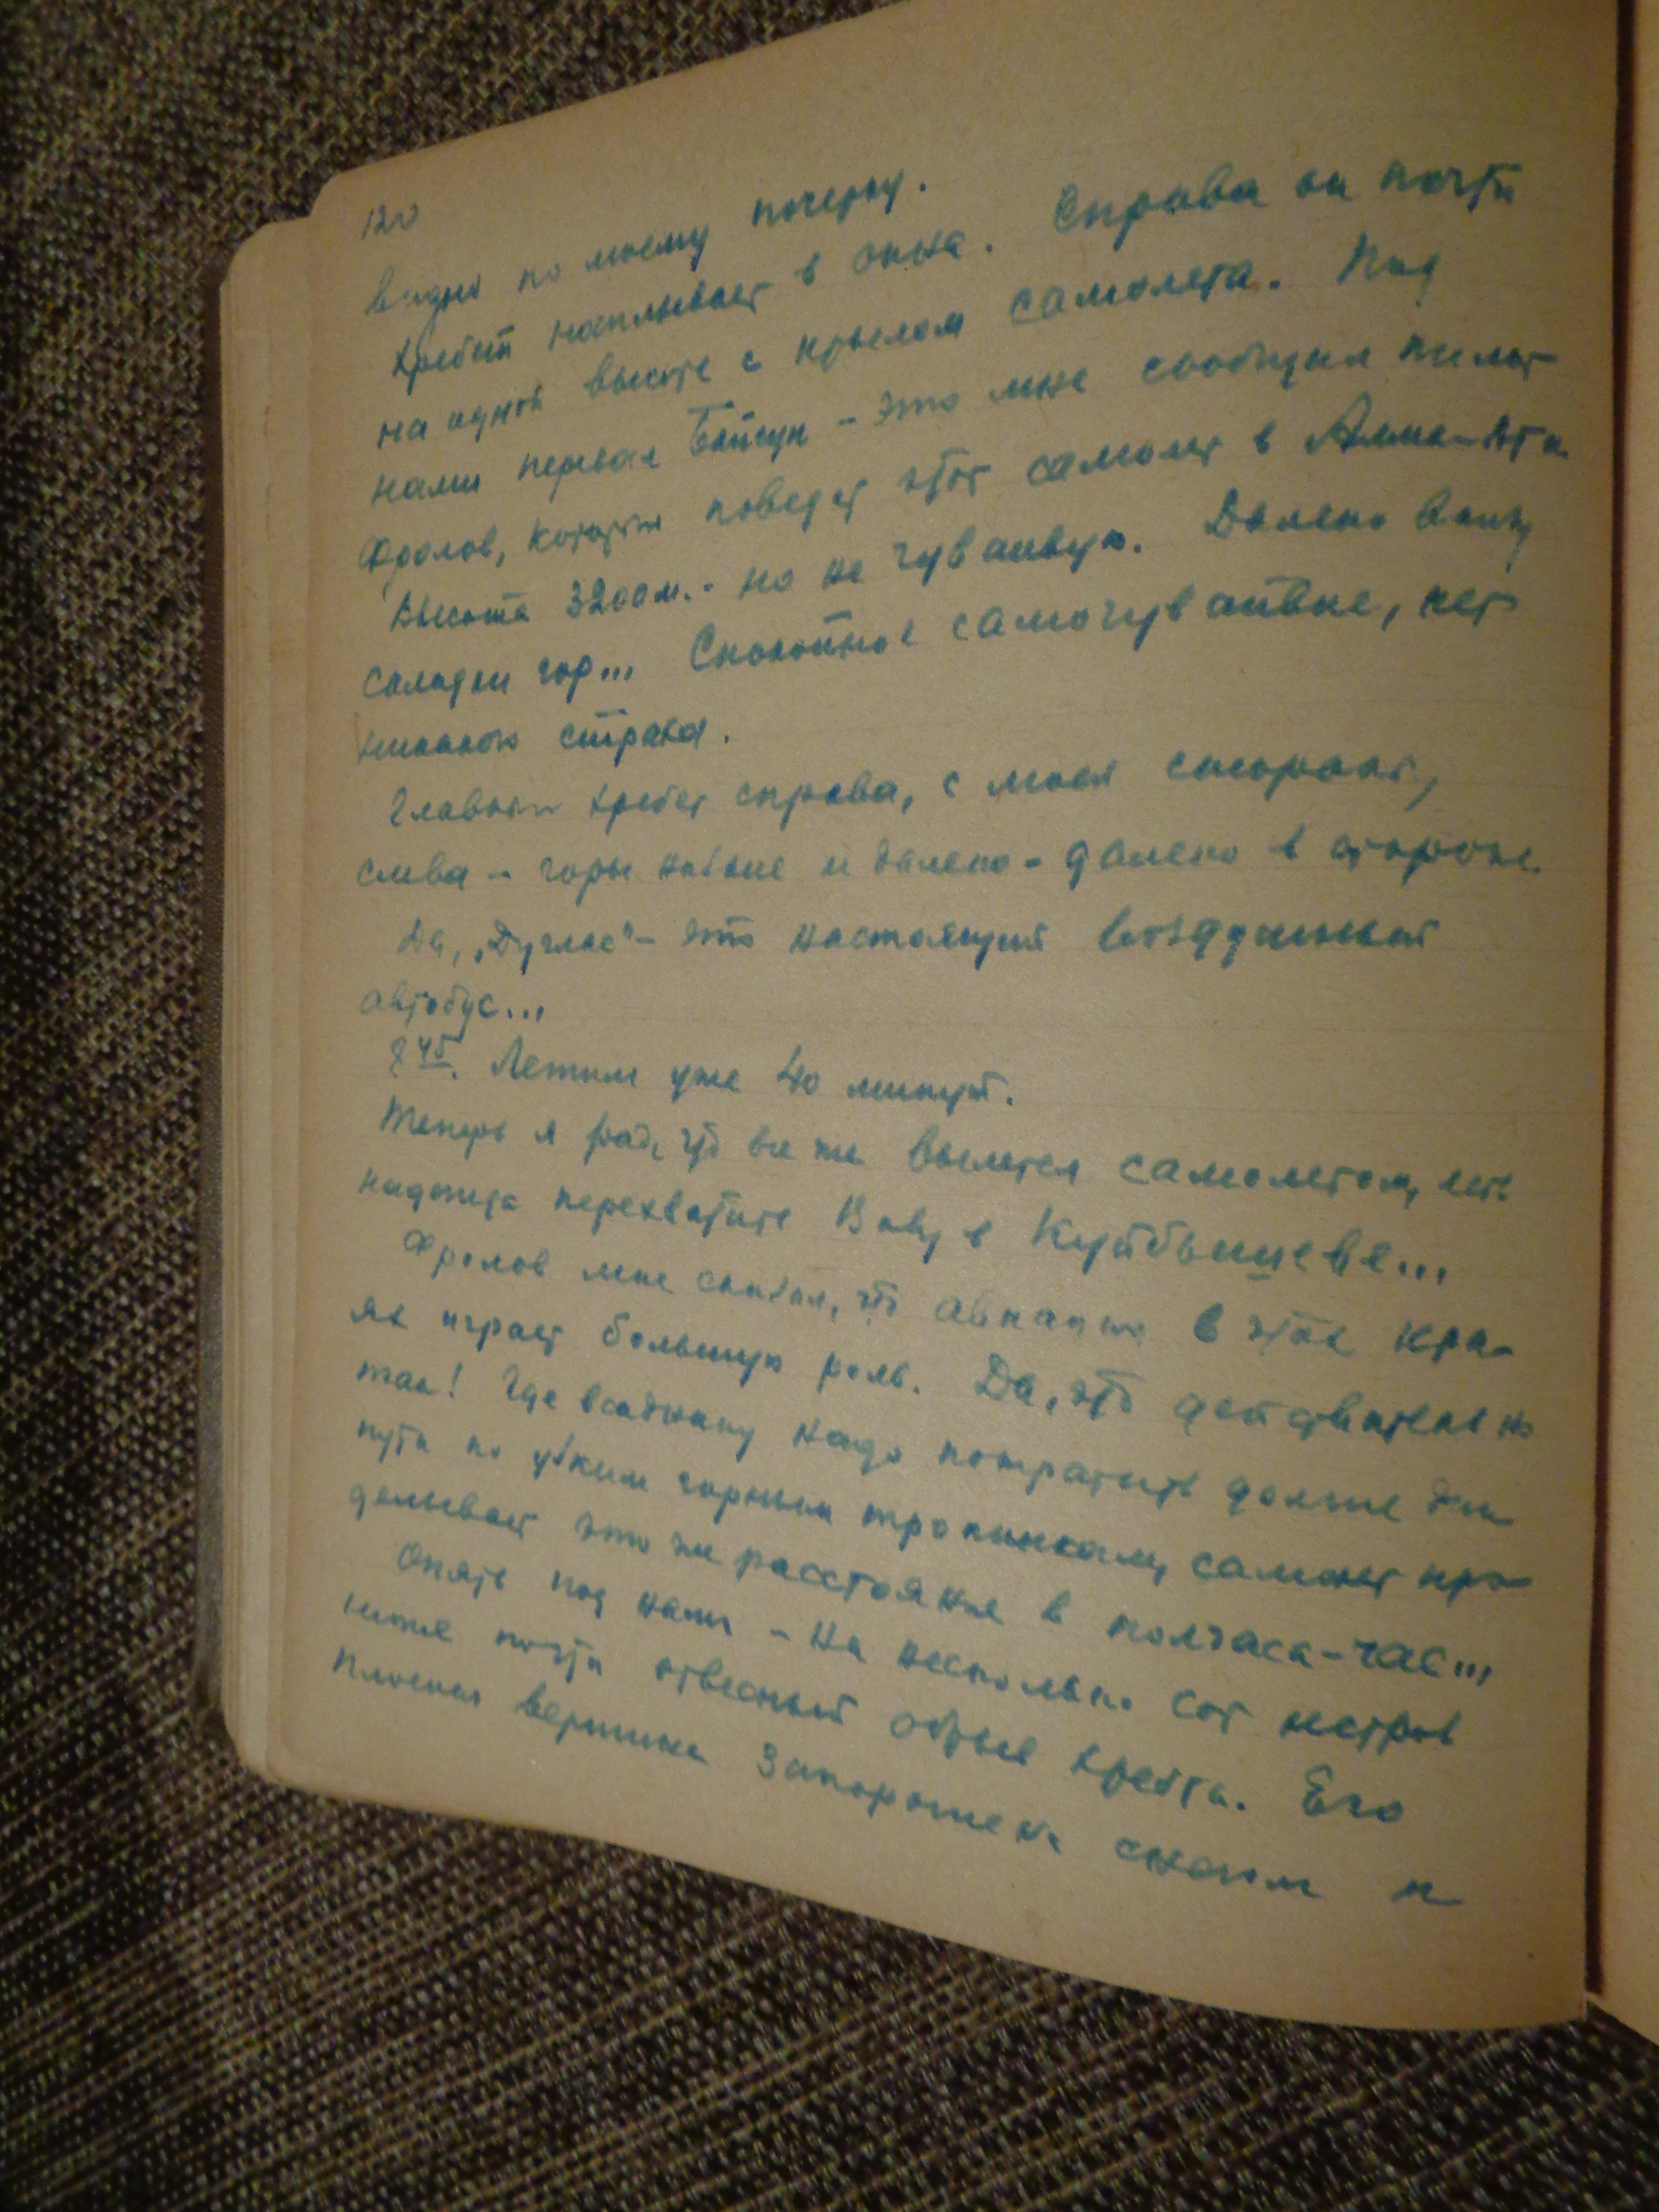 120
видно по моему почерку.
Хребет наплывает в окна. Справа он почти
на одной высоте с крылом самолета. Под
нами перевал Байсун – это мне сообщил пилот
Фролов, который поведет этот самолет в Алма-Ата
Высота 3200 м. – но не чувствую. Далеко внизу
складки гор... Спокойное самочувствие, нет
никакого страха.
Главный хребет справа, с моей стороны,
слева – горы низкие и далеко-далеко в стороне.
Да, „Дуглас" – это настоящий воздушный
автобус...
8 45. Летим уже 40 минут.
Теперь я рад, что все же вылетел самолетом, есть
надежда перехватить Вову в Куйбышеве...
Фролов мне сказал, что авиация в этих кра-
ях играет большую роль. Да, это действительно
так! Где всаднику надо потратить долгие дни
пути по узким горным тропинкам, самолет про-
делывает это же расстояние в полчаса-час...
Опять под нами – на несколько сот метров
ниже почти отвесный обрыв хребта. Его
плоская вершина запорошена снегом и